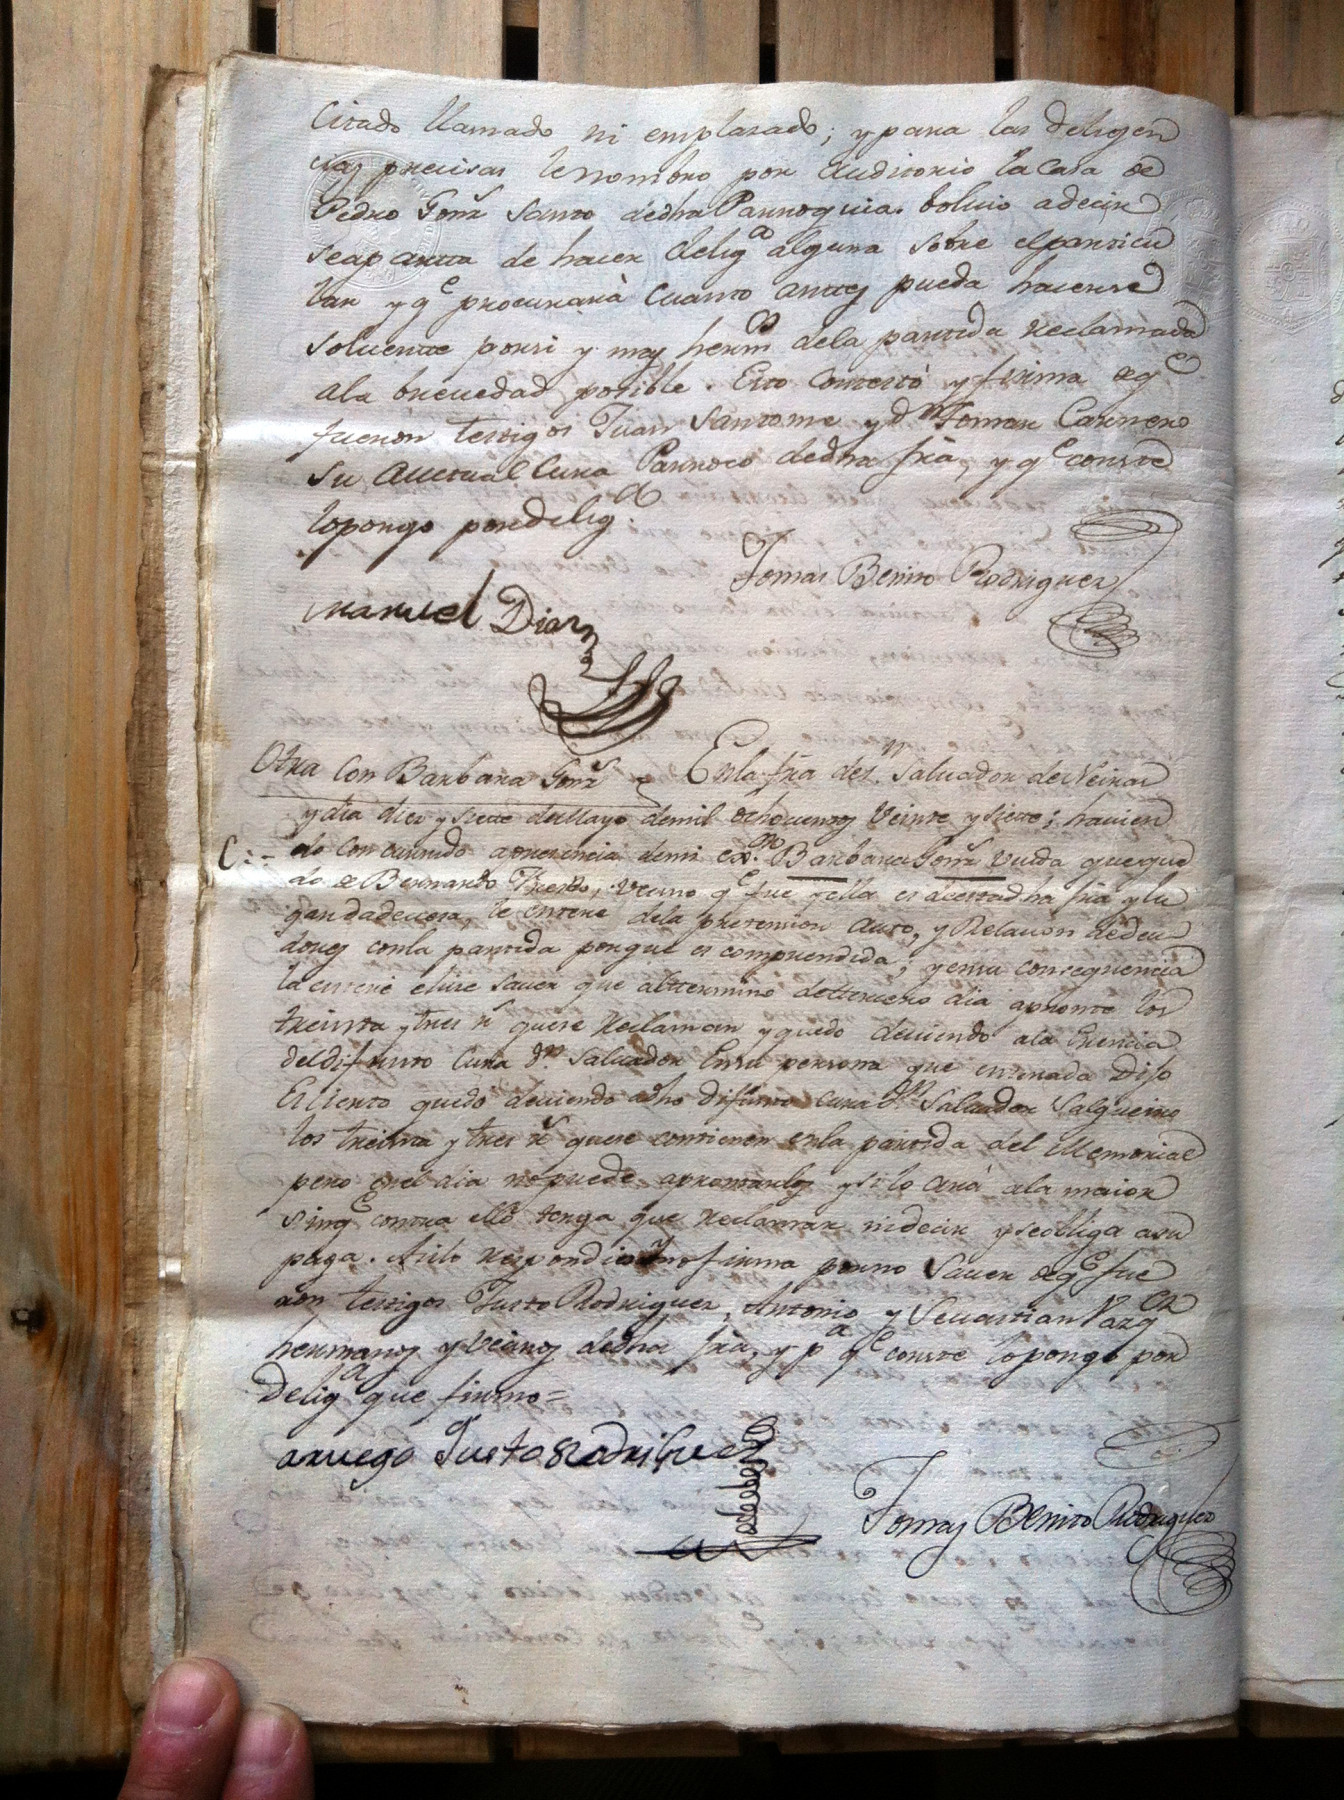 Citado llamado ni emplasado; y para las deligen
cias precisas le nombro por Auditorio la Casa de
Pedro Gonz Santo dedha Parroquia. bolvio adecir
seapartta de hacer delig.a alguna sobre elparticu
lar y q.e procurarà Cuanto anttes pueda hacerse
solventte porsi y mas herm.os dela partida reclamada
ala brevedad posible. Esto Contestó y firma deq.e
fueron testigos Juan Santome y d.n Tomas Carnero
su Acctual Cura Parroco dedha frâ, y q.e conste
lopongo pordelig.a:
Tomas Benito Rodriguez
Manuel Diaz
Otra Con Barbara Gonz = Enla frâ deS.n Salvador de Neiras
y dia diez y siete deMayo demil ochocientos Veinte y siete; havien
do Concurrido apresencia demi es.no Barbara Gonz viuda quequé
do de Bernardo, Vecino q.e fue yella es deestadha frâ y lu
gar, le enteré dela pretension Auto, y Relacion dedeu
dores conla partida porque es comprendida; y ensu consequencia
la enteré e hice saver que altermino deltercero dia apronte los
treinta y tres r.s quese reclaman y quedo deviendo ala erencia
deldifunto Cura d.n Salvador Ensu persona que enterada Dijo
Es cierto quedó deviendo adho difunto Cura d.n Salvador Salgueiro
los treinta y tres r.s quese contienen enla partida del Memorial
pero enel dia nopuede aprontarlos y si lo ará ala maior
sinq.e contra ello tenga que reclamar nidecir y seobliga asu
paga. Asilo respondio y nofirma porno Saver deq.e fue
ron testigos Justo Rodriguez, Antonio y Sevastian Vazq.ez
hermanos y vecinos dedha frâ, y p.a q.e conste lopongo por
Delig.a que firmo=
aruego Justo Rodriguez
Tomas Benito Rodriguez